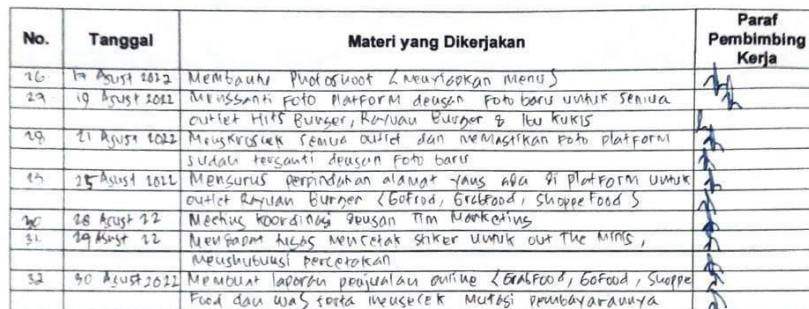 No. Tanggal Materi yang Dikerjakan Paraf Pembimbing Kerja
26 17 Agust 2022 Membantu Photoshoot (Menyiapkan menu)
27 19 Agust 2022 Mengganti Foto Platform dengan Foto baru untuk semua
outlet Hits Burger, Rayuan Burger & Ibu Kukis
28 21 Agust 2022 Mengkroscek semua outlet dan memastikan Foto platform
sudah terganti dengan Foto baru
25 Agust 2022 Mengurus perpindahan alamat yang ada di platform untuk
outlet Rayuan Burger (GoFood, GrabFood, Shoppe Food)
30 28 Agust 22 Koordinasi dengan Tim Marketing
31 29 Agust 22 Mendapat tugas mencetak stiker untuk out The Mins,
menghubungi percetakan
32 30 Agust 2022 Membuat laporan penjualan online (GrabFood, GoFood, Shoppe
Food dan WA) serta mengecek mutasi pembayarannya